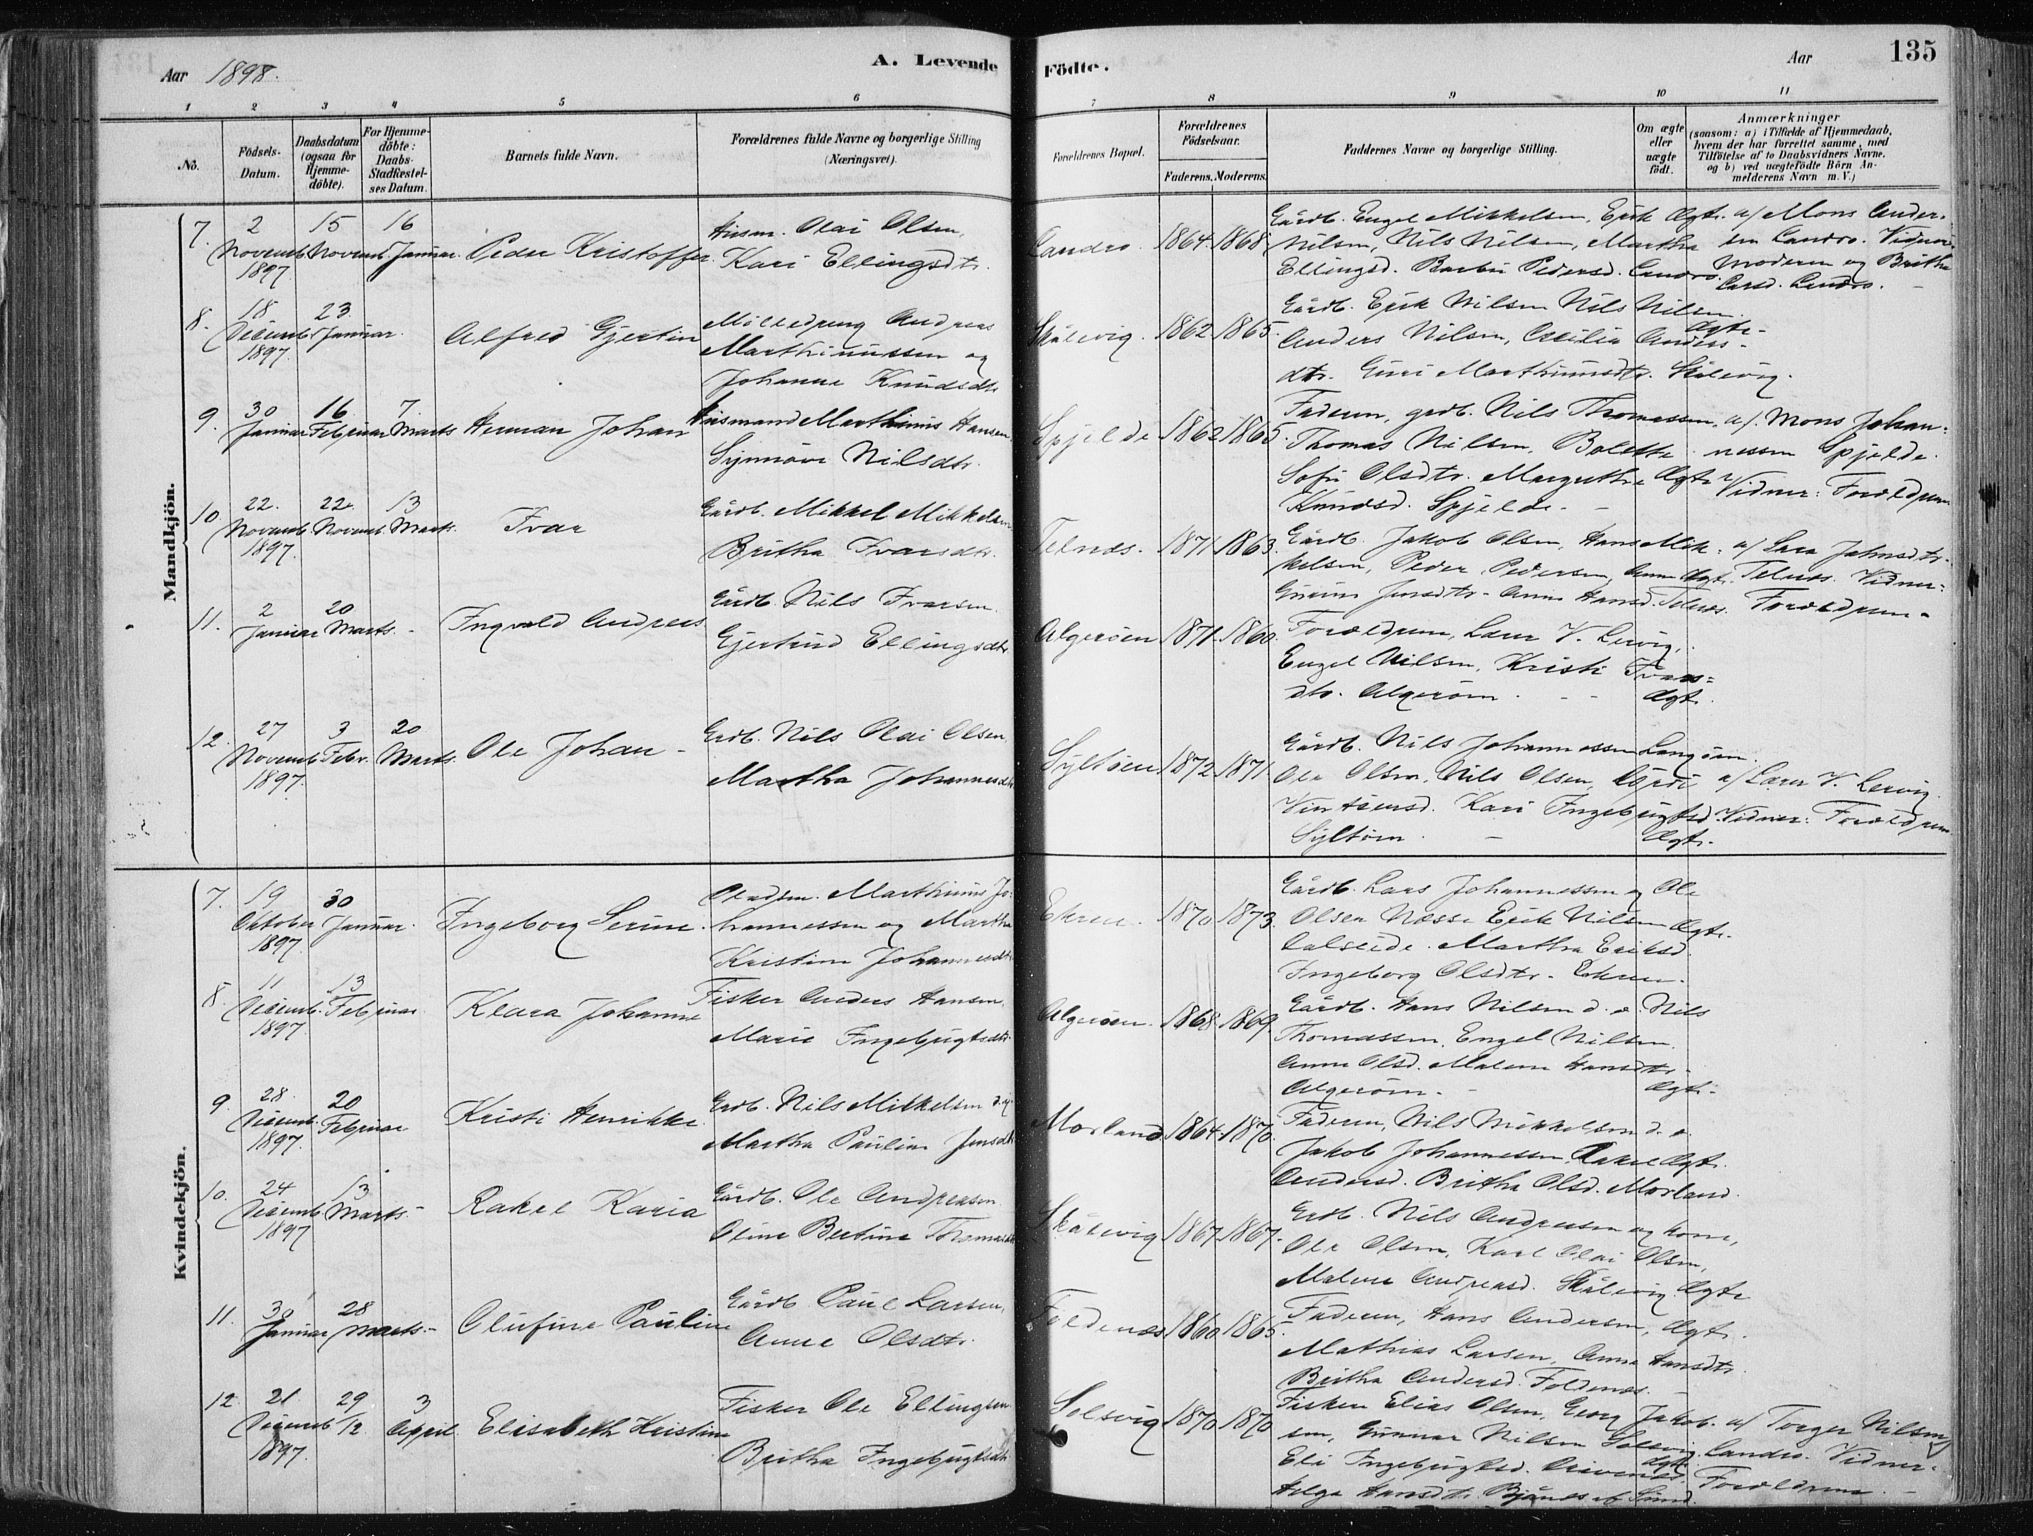 Aar 1898.
A. Levende Födte.
Aar 135
1 2 3 4 5 6 7 8 9 10 11
No.
Födsels-Datum.
Daabsdatum (ogsaa for Hjemmedöbte).
For Hjemmedöbte: Daabs-Stadfestelses Datum.
Barnets fulde Navn.
Forældrenes fulde Navne og borgerlige Stilling (Næringsvei).
Forældrenes Bopæl.
Forældrenes Födselsaar.
Faderens. Moderens.
Faddernes Navne og borgerlige Stilling.
Om ægte eller uægte födt.
Anmærkninger
(saasom: a) i Tilfælde af Hjemmedaab, hvem der har forrettet samme, med Tilföielse af to Daabsvidners Navne, og b) ved uægtefödte Börn Anmelderens Navn m. V.)
Mandkjön.
7. 2 Novemb. 1897 15 Novemb. 16 Januar. Peder Kristoffer Husm. Olai Olsen, Kari Ellingsdtr. Landro. 1864 1868
Gårdb. Engel Mikkelsen, Erik Nilsen, Nils Nilsen, Martha Ellingsd. Pedersd. Landro. Ægte.
a/ Mons Andersen Landro. Vidner: Moderen og Britha Larsd. Landro.
8. 18 Decemb. 1897. 23 Januar. Alfred Gjertin Andreas Marthinussen og Johanne Knudsdtr. Skålevig. 1862 1865.
Gårdb. Erik Nilsen Nils Nilsen Anders Nilsen, Cecilia Andersdtr. Guri Marthinusdtr. Skålevig. Ægte.
9. 30 Januar 16 Februar 7. Marts Herman Johan Husmand Marthinus Hansen. Synnøve Nilsdtr. Spjelde 1862 1865.
Faderen, grdb. Nils Thomassen, Thomas Nilsen, Bolette Sofie Olsdtr. Margrethe Knudsd. Spjelde. Ægte
a/. Mons Johannessen Spjelde. Vidner: Forældrene
10 22. Novemb. 1897. 22. Novemb. 13 Marts. Ivar Gårdb. Mikkel Mikkelsen Britha Ivarsdtr. Telnæs. 1871 1863.
Gårdb. Jakob Olsen, Hans Mikkelsen, Peder Pedersen, Jensdtr. Anna Hansd. Telnæs. Ægte.
a/ Sara Johnsdtr. Telnæs. Vidner: Forældrene
11. 2 Januar 20 Marts. Ingvald Andreas Gårdb. Nils Ivarsen. Gjertrud Ellingsdtr. Algerøen 1871 1860.
Forældrene, Lærer V. Lervig, Engel Nilsen, Kristi Ivarsdtr. Algerøen. Ægte.
12. 27 Novemb. 1897. 3 Febr. 20 Marts. Ole Johan Grdb. Nils Olai Olsen. Martha Johannesdtr. Syltøen 1872 1871.
Gårdb. Nils Johannessen Langøen. Ole Olsen, Nils Olsen, Kari Ingebrigtsd. Syltøen. Ægte.
a/ Lærer V. Lervig. Vidner: Forældrene
Kvindekjön.
7. 19 Oktober 1897. 30 Januar. Ingeborg Serine. Marthinus Johannessen og Martha Kristine Johannesdtr. Ekren. 1870 1873.
Gårdb. Lars Johannessen og Ole Olsen Næsse Erik Nilsen Martha Eriksd. Ingeborg Olsdtr. Ekren. Ægte.
8. 11 Decemb. 1897 13 Februar Klara Johanne Fisker Anders Hansen. Marie Ingebrigtsdtr. Algerøen. 1868 1869.
Gårdb. Hans Nilsen d. æ. Nils Thomassen, Engel Nilsen. Anna Olsd. Malene Hansdtr. Algerøen. Ægte.
9. 28. Decemb. 1897. 20 Februar Kristi Henrikke Grdb. Nils Mikkelsen d. y. Martha Pauline Jensdtr. Morland 1864 1870.
Faderen, Nils Mikkelsen d. æ. Jakob Johannessen, Rakel Andersd. Britha Olsd. Morland. Ægte.
10. 24 Decemb. 1897 13 Marts. Rakel Karia Gårdb. Ole Andreasen Oline Bertine Thomasdtr. Skålevig 1867 1867.
Grdb. Nils Andreasen og kone, Ole Olsen, Karl Olai Olsen, Malene Andreasd. Skålevig Ægte
11. 30 Januar 28 Marts. Olufine Pauline Gårdb Paul Larsen, Anna Olsdtr. Foldenæs 1860 1865.
Faderen, Hans Andersen, Mathias Larsen, Anna Hansdtr. Britha Andersd. Foldenæs. Ægte.
12. 21. Decemb 1897. 29/12. 3 April Elisabeth Kristine Fisker Ole Ellingsen Britha Ingebrigtsdtr. Solsvig 1870 1870
Fisker Elias Olsen, Georg Jakobsen, Gunnar Nilsen Solsvig, Eli Ingebrigtsd. Helga Hansdtr. Ægte
a/ Torger Nilsen, Landro. Vidner: Forældrene.